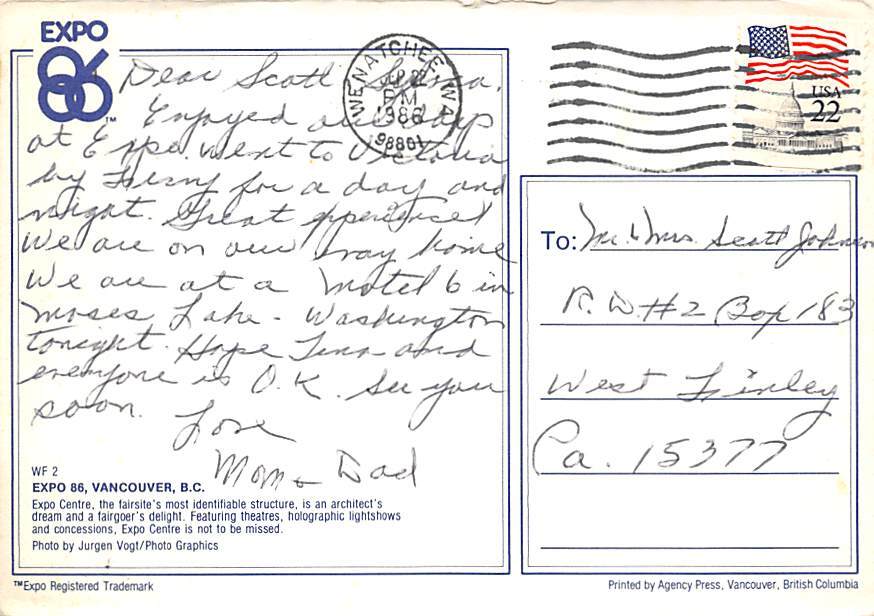 EXPO
86™
Dear Scott
Enjoyed our days
at Expo. Went to Victoria
by Ferry for a day and
night. Great experience!
We are on our way home
We are at a Motel 6 in
Moses Lake - Washington
tonight. Hope Tina and
everyone is O.K. See you
soon.
Love
Mom & Dad
WENATCHEE WA
PM
1986
98801
USA
22
To: Mr. & Mrs. Scott Johnson
R.D.#2 Box 183
West Finley
Pa. 15377
WF 2
EXPO 86, VANCOUVER, B.C.
Expo Centre, the fairsite's most identifiable structure, is an architect's
dream and a fairgoer's delight. Featuring theatres, holographic lightshows
and concessions, Expo Centre is not to be missed.
Photo by Jurgen Vogt/Photo Graphics
™Expo Registered Trademark
Printed by Agency Press, Vancouver, British Columbia